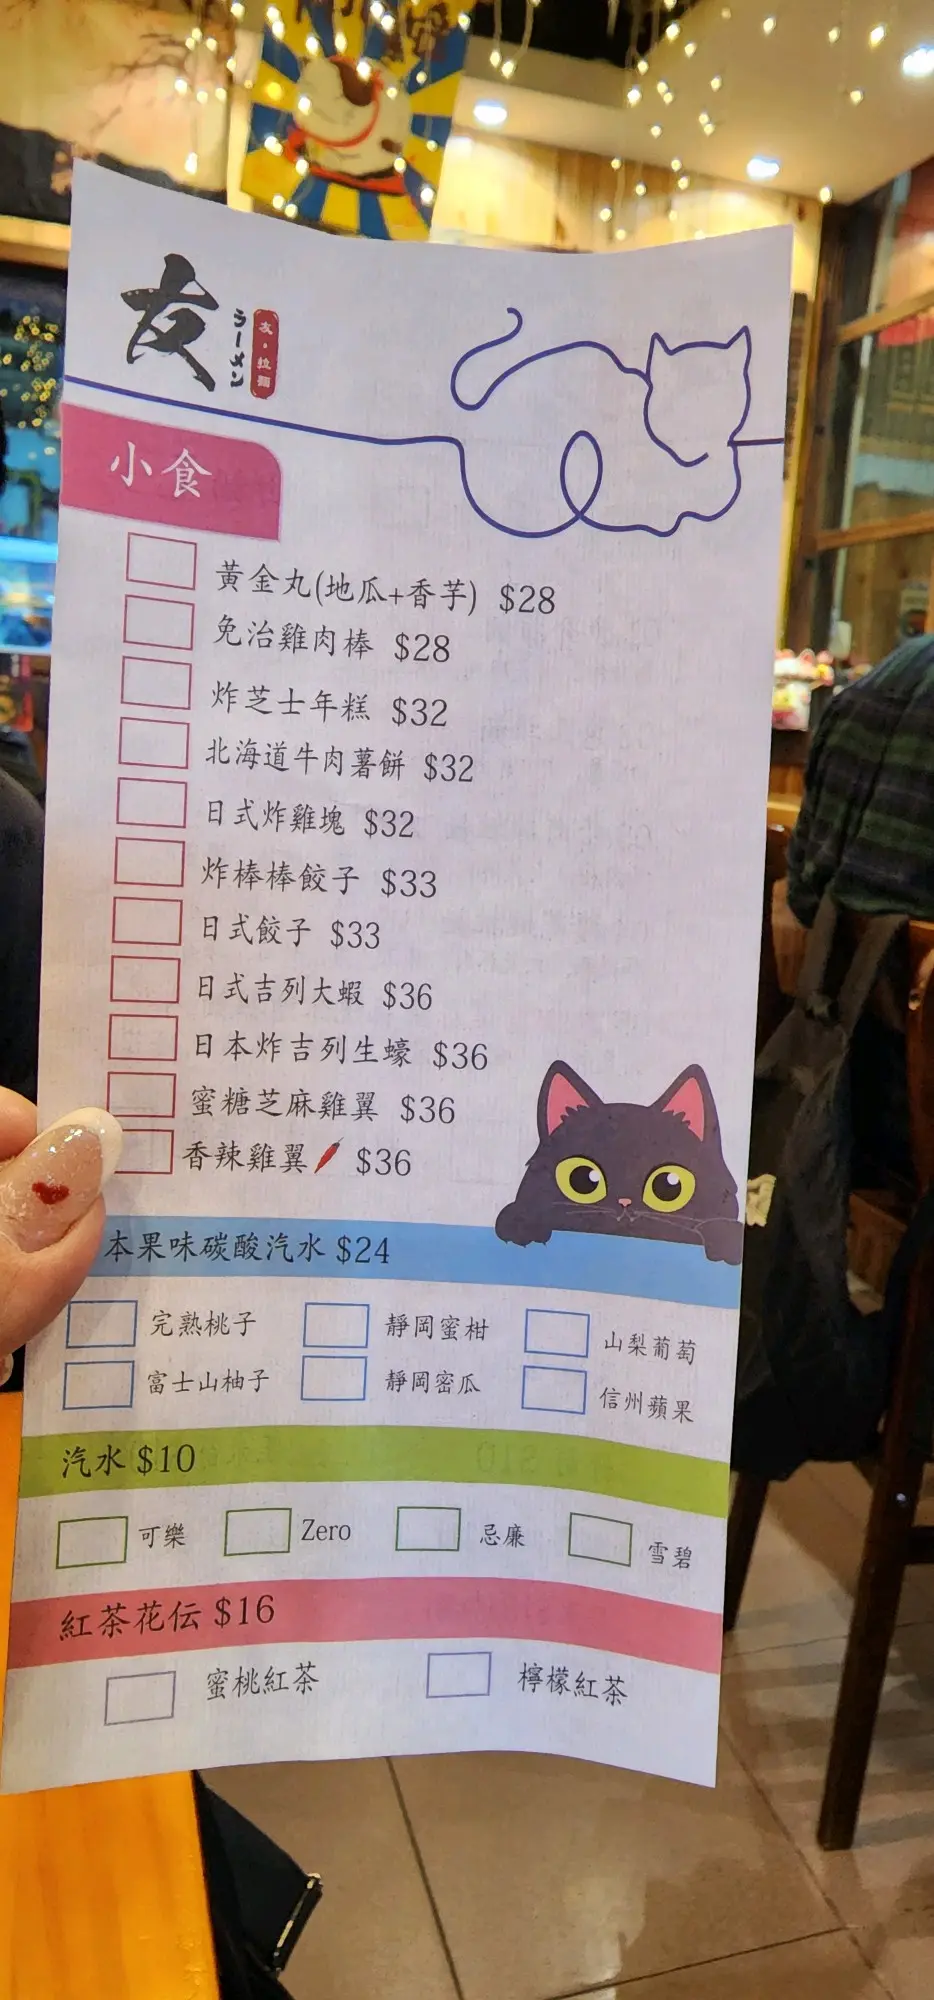 友
ラーメン
友・拉麵
小食
黃金丸(地瓜+香芋) $28
免治雞肉棒 $28
炸芝士年糕 $32
北海道牛肉薯餅 $32
日式炸雞塊 $32
炸棒棒餃子 $33
日式餃子 $33
日式吉列大蝦 $36
日本炸吉列生蠔 $36
蜜糖芝麻雞翼 $36
香辣雞翼 $36
本果味碳酸汽水 $24
完熟桃子 靜岡蜜柑 山梨葡萄
富士山柚子 靜岡密瓜 信州蘋果
汽水 $10
可樂 Zero 忌廉 雪碧
紅茶花伝 $16
蜜桃紅茶 檸檬紅茶